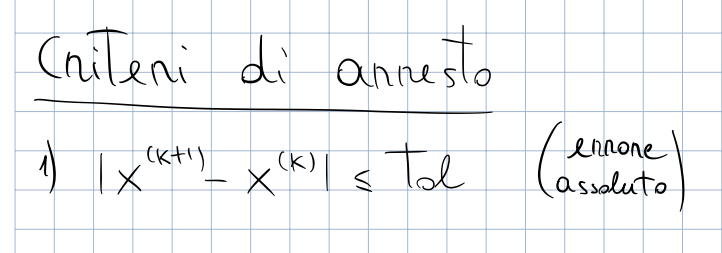 Criteri di arresto
1) |x^(k+1) - x^(k)| ≤ Tol (errore assoluto)